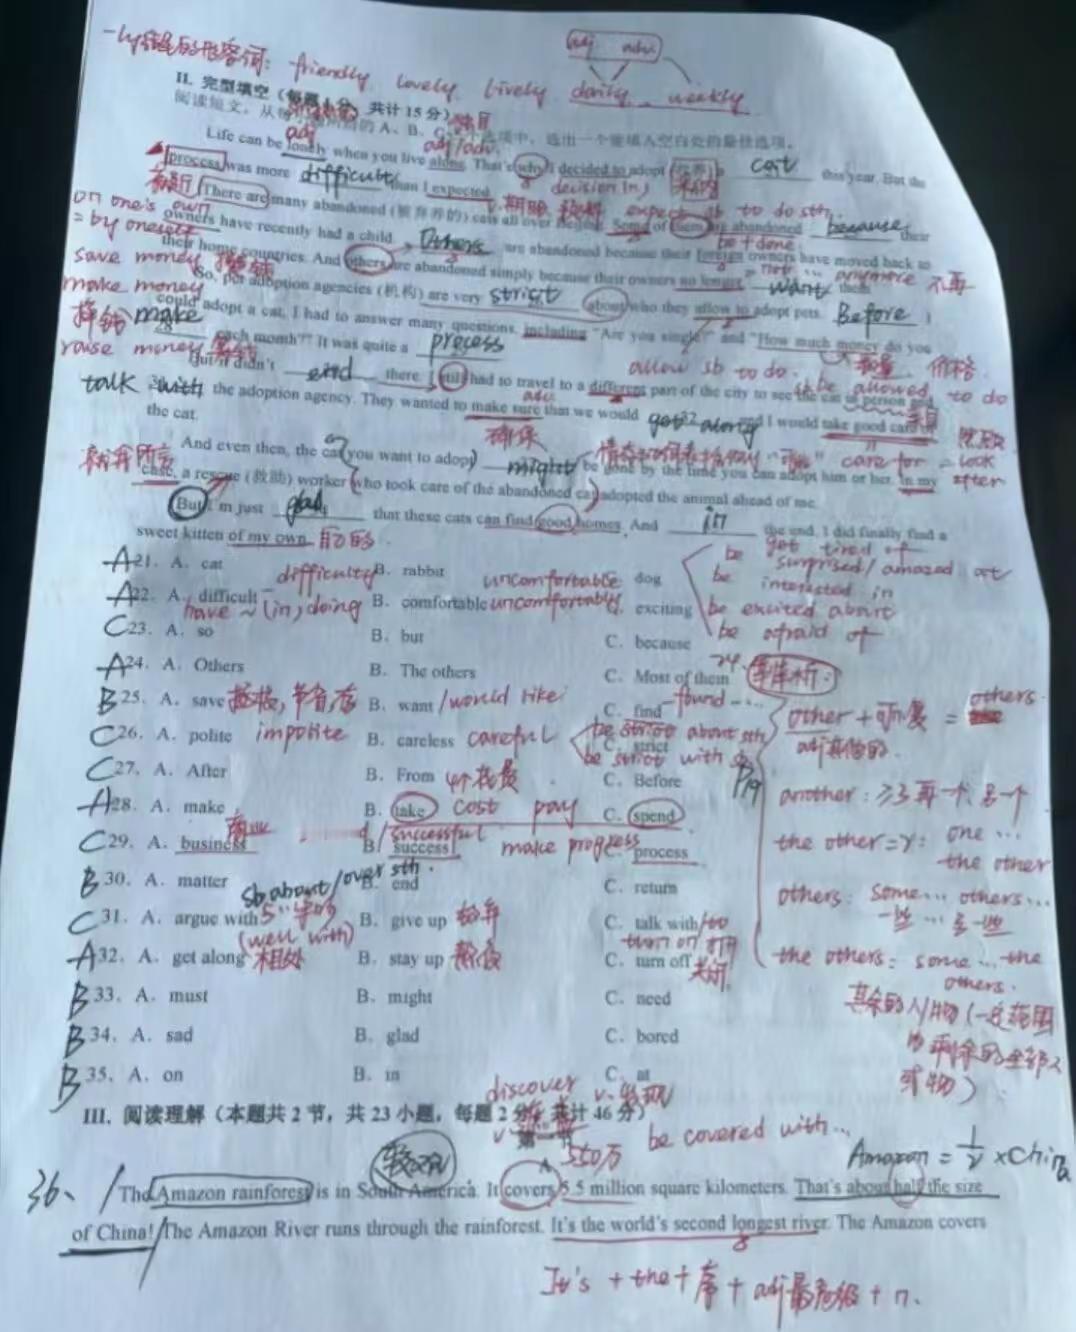 -ly结尾的形容词: friendly lovely lively daily weekly
adj adv.
II. 完型填空（每题1分，共计15分）
阅读短文，从每小题所列的 A、B、C三个选项中，选出一个能填入空白处的最佳选项。
adj adj/adv. 独自
Life can be lonely when you live alone. That's why I decided to adopt a cat this year. But the
process was more difficult than I expected.
decision (n.)
v. 期盼, 预料 expect sb to do sth.
on one's own
= by oneself
There are many abandoned (被弃养的) cats all over Beijing. Some of them are abandoned because their
owners have recently had a child. Others are abandoned because their foreign owners have moved back to
be + done
their home countries. And others are abandoned simply because their owners no longer want them.
= not ... anymore 不再
save money
make money
挣钱
raise money
So, pet adoption agencies (机构) are very strict about who they allow to adopt pets. Before I
could adopt a cat, I had to answer many questions, including "Are you single?" and "How much money do you
make each month?" It was quite a process
allow sb to do.
价格
sb be allowed to do
But it didn't end there. I still had to travel to a different part of the city to see the cat in person and
adv.
talk with the adoption agency. They wanted to make sure that we would get along and I would take good care of
确保
the cat.
care for = look after
And even then, the cat you want to adopt might be gone by the time you can adopt him or her. In my
case, a rescue (救助) worker who took care of the abandoned cat adopted the animal ahead of me.
But I'm just glad that these cats can find good homes. And in the end, I did finally find a
sweet kitten of my own. 自己的
get tired of
be surprised/amazed at
be interested in
be excited about
be afraid of
A 21. A. cat B. rabbit C. dog
difficulty
uncomfortable
A 22. A. difficult B. comfortable uncomfortably C. exciting
have ~ (in) doing
C 23. A. so B. but C. because
A 24. A. Others B. The others C. Most of them
B 25. A. save 拯救, 节省 B. want /would like C. find - found
C 26. A. polite impolite B. careless careful C. strict
be strict about sth
be strict with sb
C 27. A. After B. From C. Before
A 28. A. make B. take cost pay C. spend
C 29. A. business 商业 B. success C. process
successful
make progress
B 30. A. matter B. end C. return
sb about/over sth.
C 31. A. argue with B. give up 放弃 C. talk with/to
(well with)
turn on 打开
A 32. A. get along 相处 B. stay up 熬夜 C. turn off 关闭
B 33. A. must B. might C. need
B 34. A. sad B. glad C. bored
B 35. A. on B. in C. at
24.
other + 可n复 = others.
adj 其他的.
P19
another: ≥3 再一个, 另一个
the other = 2: one ...
the other
others: some ... others ...
一些 ... 另一些
the others: some ... the
others.
其余的人/物 (一定范围
内剩余的全部人
或物)
discover v. 发现
III. 阅读理解（本题共 2 节，共 23 小题，每题 2 分，共计 46 分）
第一节
A
550万
be covered with ...
Amazon = 1/2 × China
36、
The Amazon rainforest is in South America. It covers 5.5 million square kilometers. That's about half the size
of China! The Amazon River runs through the rainforest. It's the world's second longest river. The Amazon covers
It's + the + 序 + adj最高级 + n.